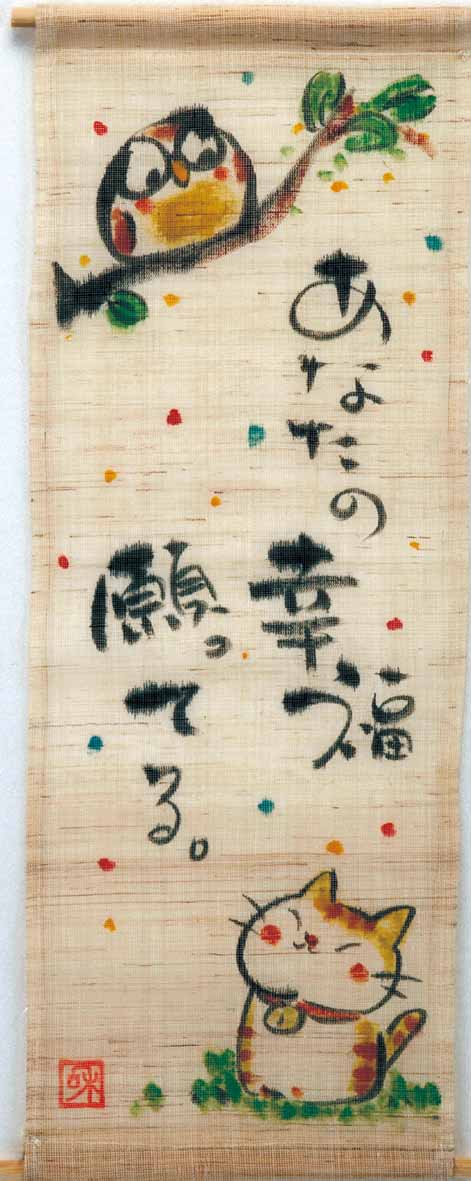 あなたの幸福
願ってる。